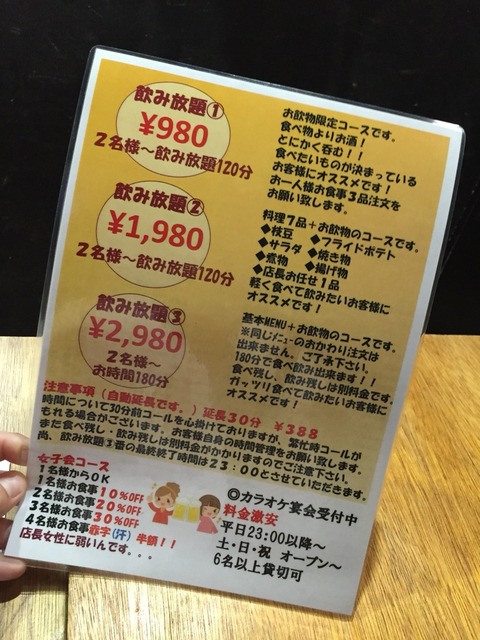 飲み放題①
¥980
２名様～飲み放題120分
お飲物限定コースです。
食べ物よりお酒！
とにかく呑む！！
食べたいものが決まっている
お客様にオススメです！
お一人様お食事３品注文を
お願い致します。
飲み放題②
¥1,980
２名様～飲み放題120分
料理７品＋お飲物のコースです。
◆枝豆　◆フライドポテト
◆サラダ　◆焼き物
◆煮物　◆揚げ物
◆店長お任せ１品
軽く食べて飲みたいお客様に
オススメです！
飲み放題③
¥2,980
２名様～
お時間180分
基本MENU＋お飲物のコースです。
※同じメニューのおかわり注文は
出来ません。ご了承下さい。
180分で食べ飲み出来ます！！
食べ残し、飲み残しは別料金です。
ガッツリ食べて飲みたいお客様に
オススメです！
注意事項（自動延長です。）延長３０分　￥３８８
時間について30分前コールを心掛けておりますが、繁忙時コールが
もれる場合がございます。お客様自身の時間管理をお願い致します。
また食べ残し・飲み残しは別料金がかかりますのでご注意下さい。
尚、飲み放題③番の最終終了時間は２３：００とさせていただきます。
女子会コース
１名様からＯＫ
１名様お食事１０％OFF
２名様お食事２０％OFF
３名様お食事３０％OFF
４名様お食事赤字(汗) 半額！！
店長女性に弱いんです．．．
◎カラオケ宴会受付中
料金激安
平日23:00以降～
土・日・祝　オープン～
６名以上貸切可